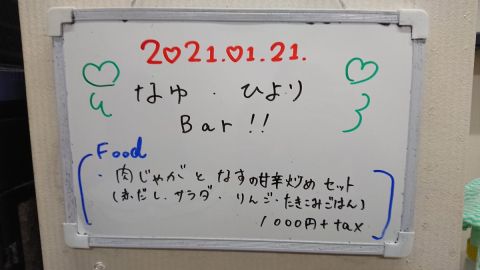 2♡21.♡1.21.
なゆ . ひより
Bar !!
Food
・肉じゃがと なすの甘辛炒め セット
(赤だし. サラダ. りんご・たきこみごはん)
1000円+tax